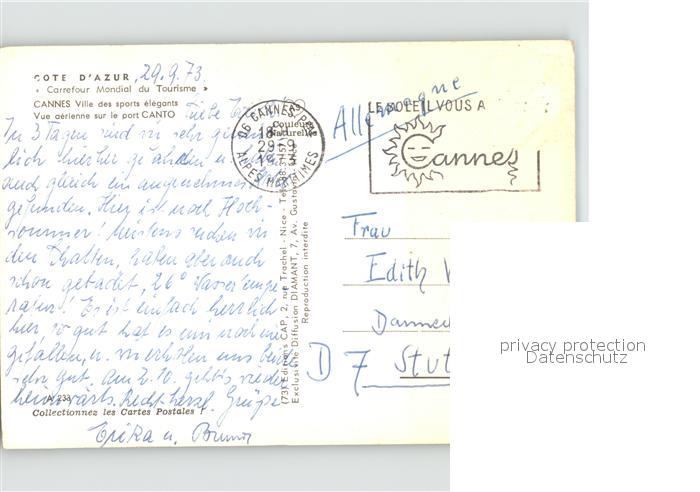 COTE D'AZUR, 29.9.73.
« Carrefour Mondial du Tourisme »
CANNES Ville des sports élégants
Vue aérienne sur le port CANTO
Liebe
In 3 Tagen sind wir sehr
lich hierher gefahren u.
auch gleich ein angenehmes
gefunden. Hier ist noch Hoch-
sommer! Meistens suchen wir
den Schatten, haben aber auch
schon gebadet, 26° Wassertempe-
ratur! Es ist einfach herrlich
hier, so gut hat es uns noch nie
gefallen, u. wir erholen uns auch
sehr gut. Am 2.10. geht's wieder
heimwärts. Recht herzl. Grüße
Erika u. Bruno
A 233
Collectionnez les Cartes Postales !
Couleurs
Naturelles
06 CANNES PPAL
18
29-9
1973
ALPES MARITIMES
(73) Editions CAP, 2, rue Trachel - Nice - Tél.
Exclusivité Diffusion DIAMANT, 7, Av. Gustave
Reproduction interdite
Allemagne
LE SOLEIL VOUS A
Cannes
Frau
Edith
D 7 Stut
privacy protection
Datenschutz